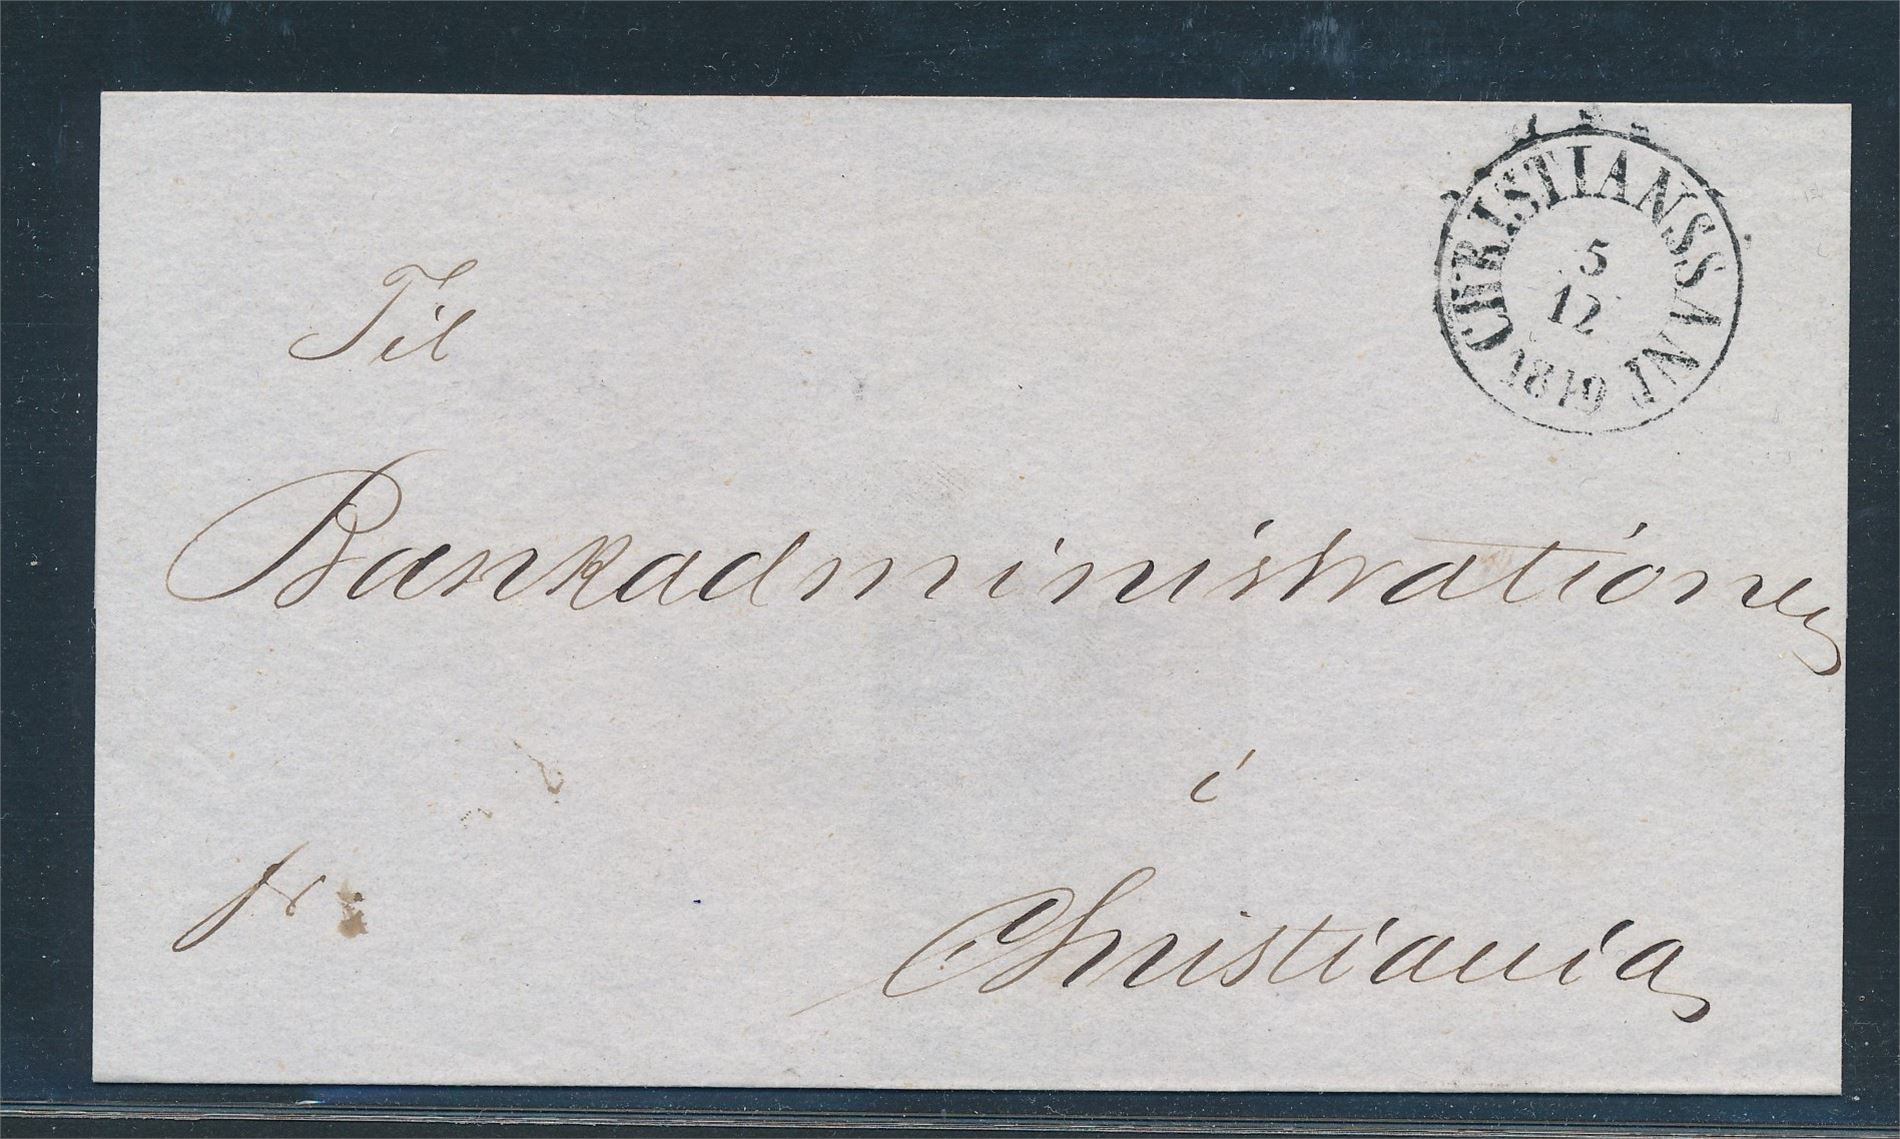 CHRISTIANSSAND
5
12
1849
Til
Bankadministrationen
i
fr:
Christiania